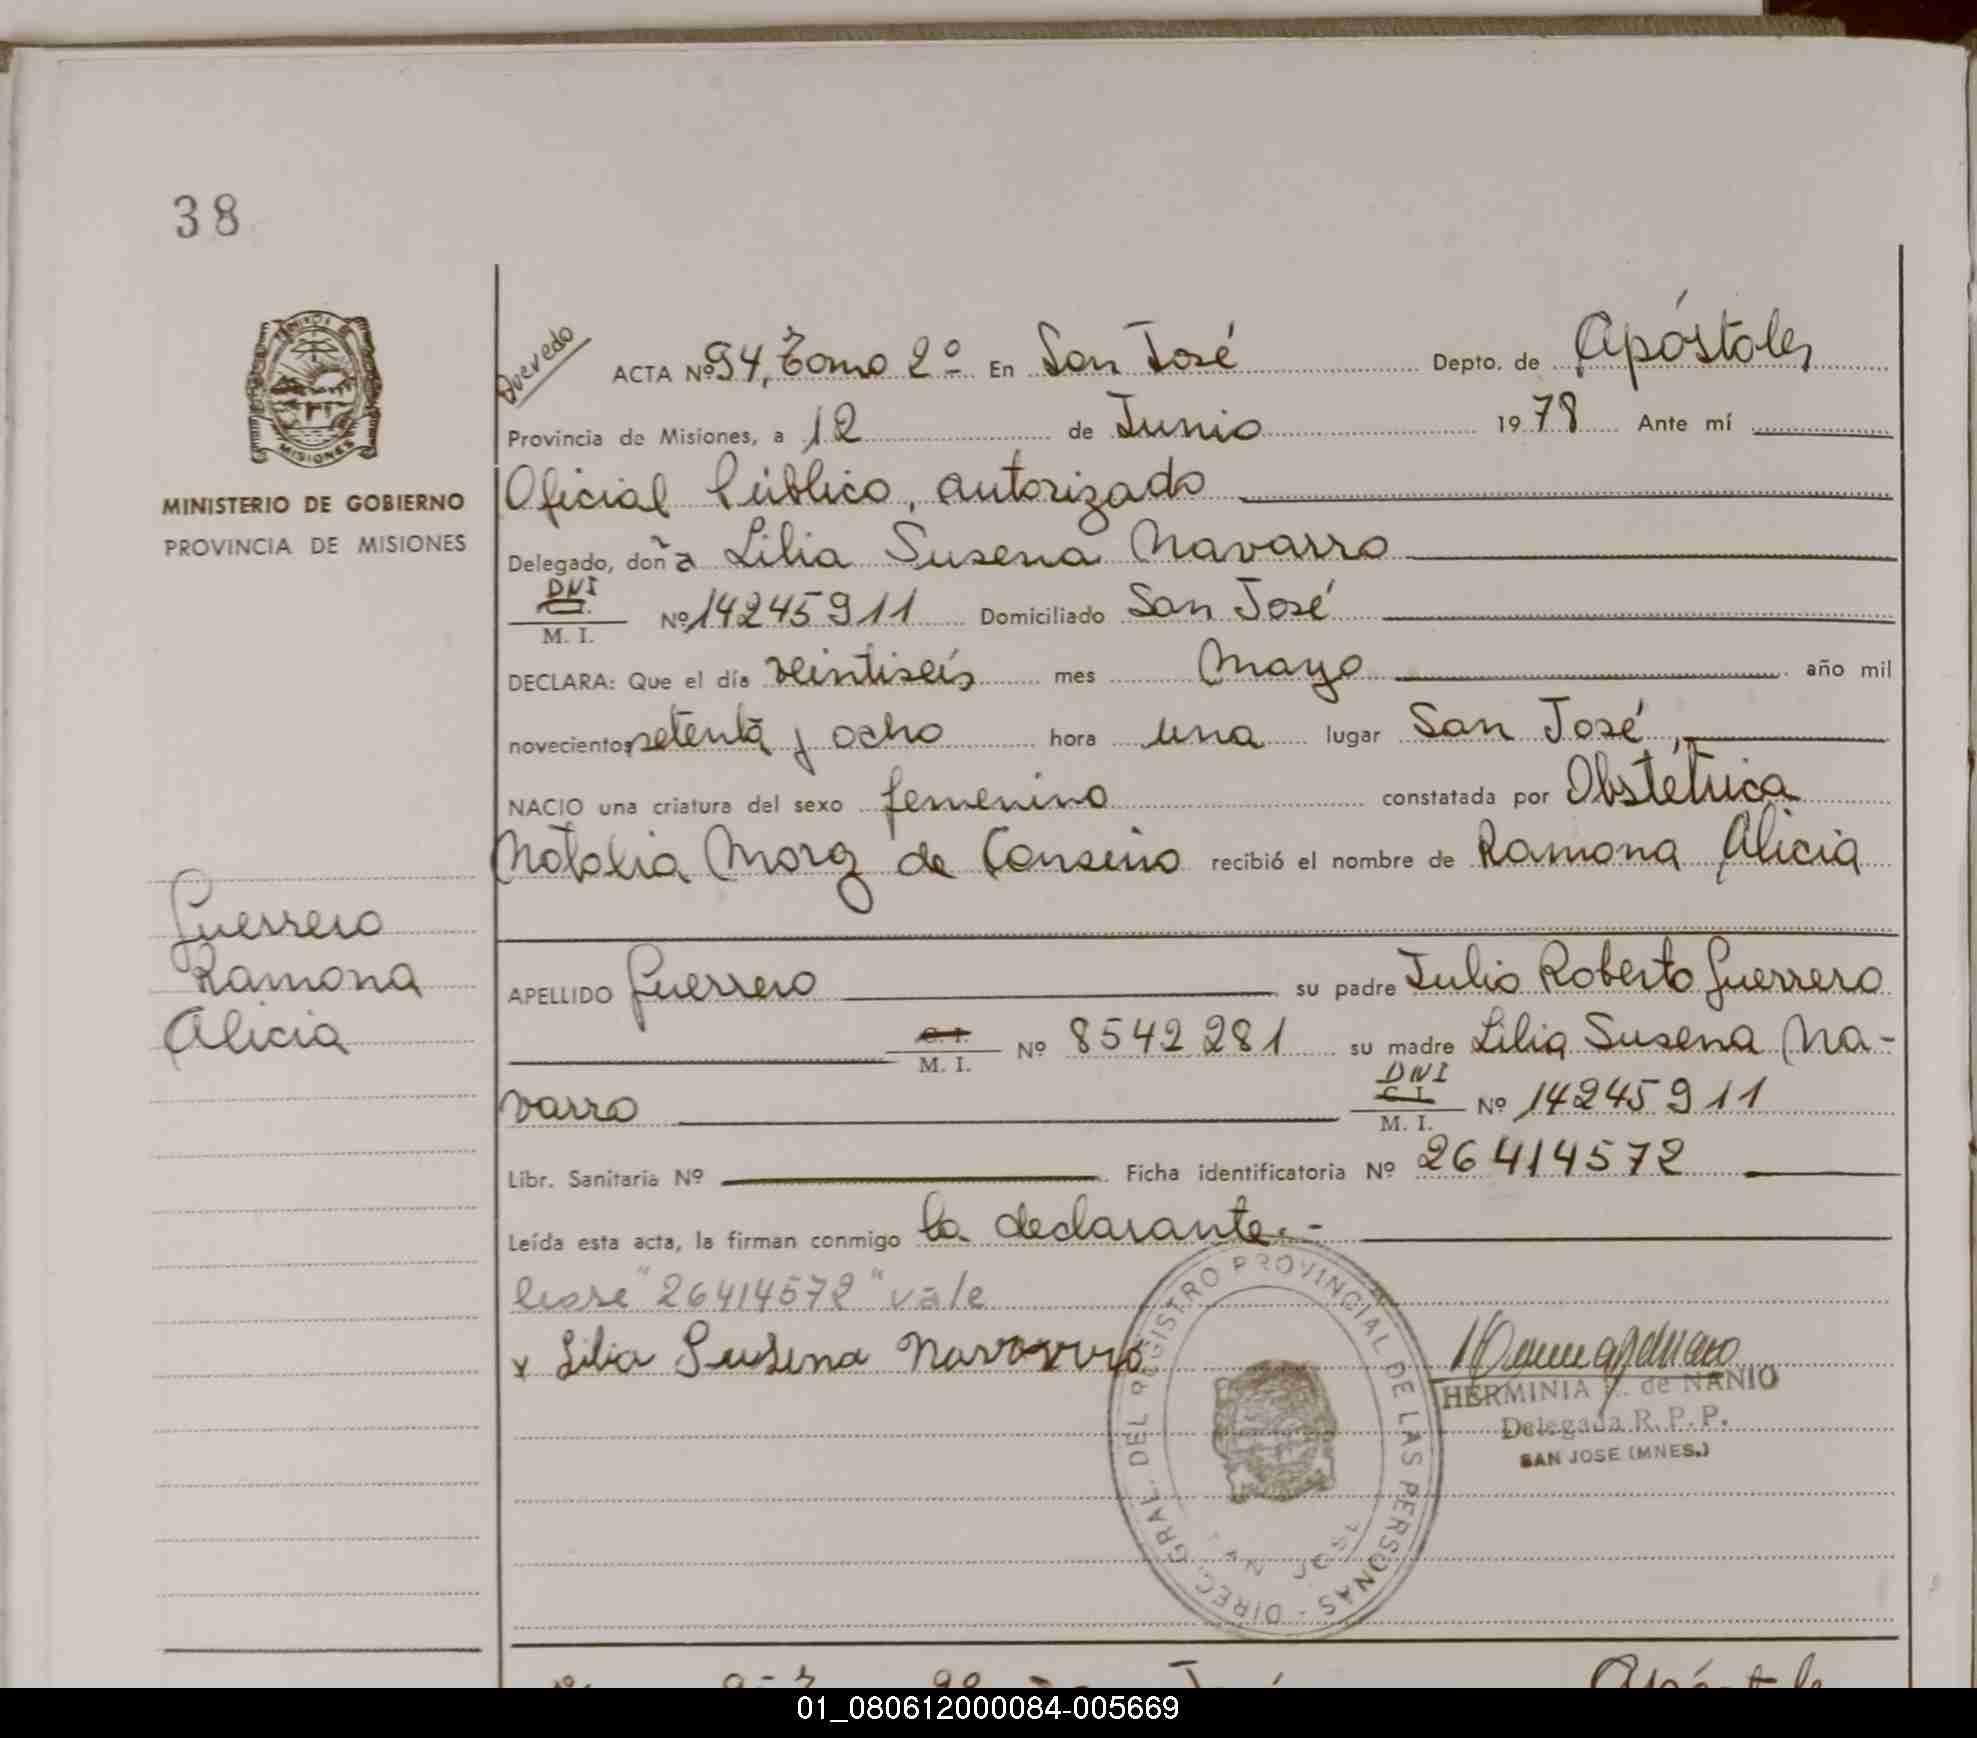 38
MISIONES
MINISTERIO DE GOBIERNO
PROVINCIA DE MISIONES
Quevedo
ACTA Nº 94, Tomo 2º En San José Depto. de Apóstoles
Provincia de Misiones, a 12 de Junio 1978 Ante mí
Oficial Público, autorizado
Delegado, doña Lilia Susena Navarro
DNI
C.I.
M. I. Nº 14245911 Domiciliado San José
DECLARA: Que el día veintiseis mes Mayo año mil
novecientos setenta y ocho hora una lugar San José,
NACIO una criatura del sexo femenino constatada por Obstétrica
Natalia de recibió el nombre de Ramona Alicia
Guerrero
Ramona
Alicia
APELLIDO Guerrero su padre Julio Roberto Guerrero
C. I.
M. I. Nº 8542281 su madre Lilia Susena Na-
varro DNI
C I
M. I. Nº 14245911
Libr. Sanitaria Nº Ficha identificatoria Nº 26414572
Leída esta acta, la firman conmigo la declarante.-
lease "26414572" vale
x Lilia Susena Navarro
DIREC. GRAL. DEL REGISTRO PROVINCIAL DE LAS PERSONAS -
SAN JOSE
HERMINIA de NANIO
Delegada R. P. P.
SAN JOSE (MNES.)
01_080612000084-005669